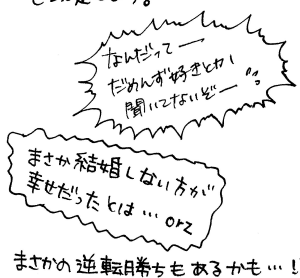 なんだってー
だめんず好きとか
聞いてないぞー
まさか結婚しない方が
幸せだったとは… orz
まさかの逆転勝ちもあるかも…!